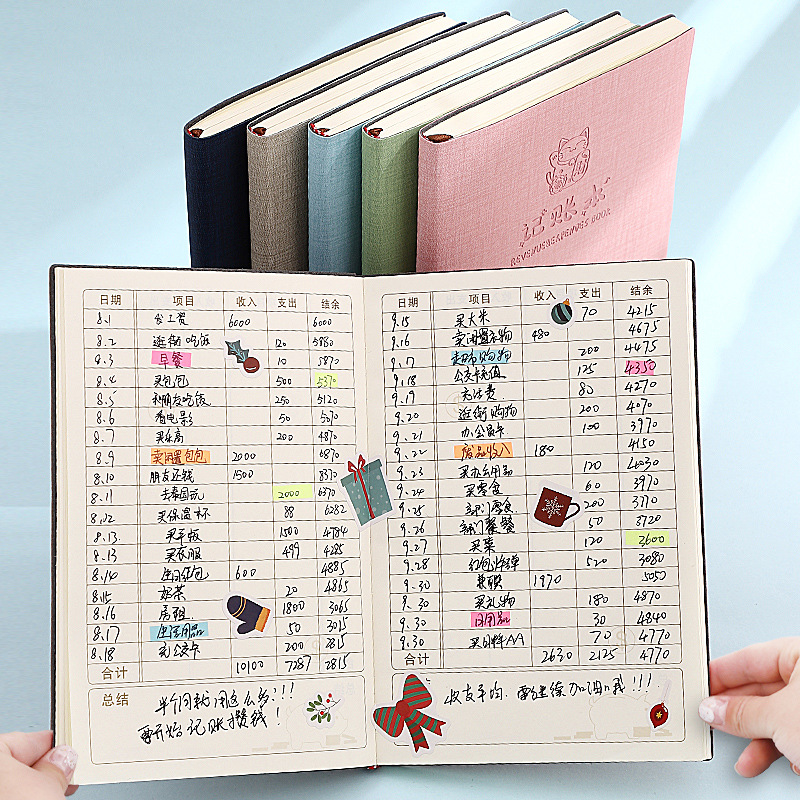 记账本
BOOK
日期 项目 收入 支出 结余
8.1 发工资 6000 6000
8.2 逛街吃饭 120 5880
8.3 早餐 10 5870
8.4 买包包 500 5370
8.5 和朋友吃饭 250 5120
8.6 看电影 50 5070
8.7 买乐高 200 4870
8.9 卖闲置包包 2000 6870
8.10 朋友还钱 1500 8370
8.11 去泰国玩 2000 6370
8.12 买保温杯 88 6282
8.13 买平板 1500 4784
8.13 买衣服 499 4285
8.14 生日红包 600 4885
8.15 奶茶 20 4865
8.16 房租 1800 3065
8.17 生活用品 50 3015
8.18 充公交卡 200 2815
合计 10100 7287 2815
总结 半个月就用这么多!!!
要开始记账攒钱!
日期 项目 收入 支出 结余
9.15 买大米 70 4215
9.16 卖闲置衣物 480 4675
9.17 超市购物 200 4475
9.18 公交卡充值 125 4350
9.19 充话费 80 4270
9.20 逛街购物 200 4070
9.21 办会员卡 100 3970
9.22 废品收入 180 4150
9.23 买办公用品 120 4030
9.24 买零食 60 3970
9.25 部门零食 200 3770
9.26 部门聚餐 50 3720
9.27 买菜 120 3600
9.28 红包炸弹 520 3080
9.30 兼职 1970 5050
9.30 买礼物 180 4870
9.30 日用品 30 4840
9.30 买日料AA 70 4770
合计 2630 2125 4770
收支平均,要继续加油哦!!!